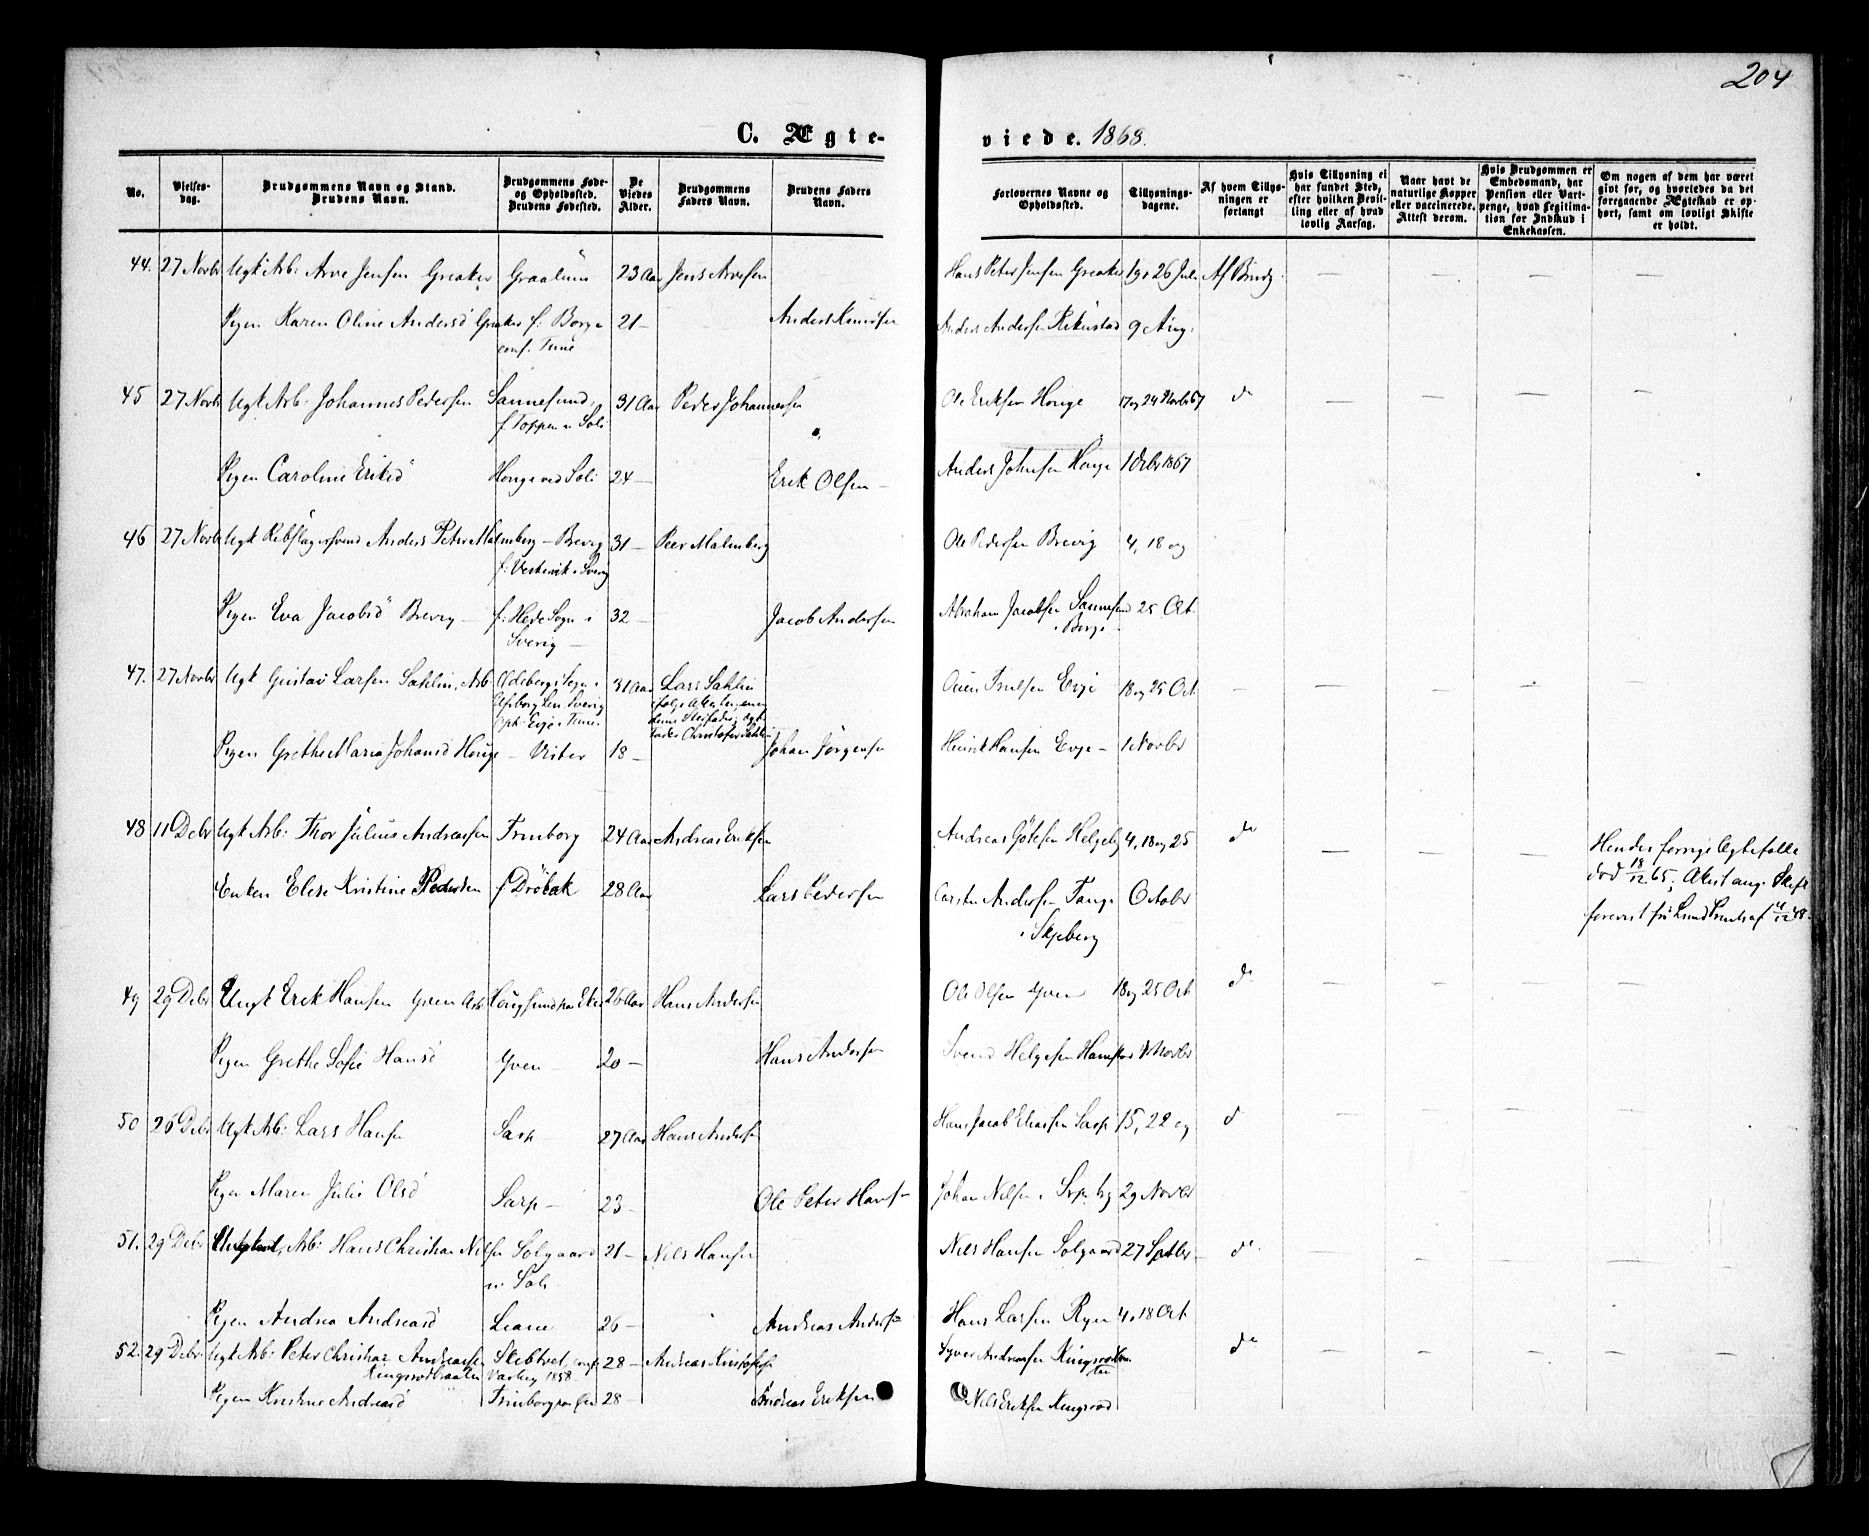 204
C. Ægte-
viede. 1868.
No.
Vielses-
dag.
Brudgommens Navn og Stand.
Brudens Navn.
Brudgommens Føde-
og Opholdssted.
Brudens Fødested.
De
Viedes
Alder.
Brudgommens
Faders Navn.
Brudens Faders
Navn.
Forlovernes Navne og
Opholdssted.
Tillysnings-
dagene.
Af hvem Tillys-
ningen er
forlangt
Hvis Tillysning ei
har fundet Sted,
efter hvilken Bevil-
ling eller af hvad
lovlig Aarsag.
Naar havt de
naturlige Kopper
eller vaccinerede.
Attest derom.
Hvis Brudgommen er
Embedsmand, har
Pension eller Vart-
penge, hvad Legitima-
tion for Indskud i
Enkekassen.
Om nogen af dem har været
givt før, og hvorledes da det
foregaaende Ægteskab er op-
hørt, samt om lovligt Skifte
er holdt.
44. 27 Novbr Ugk Arb: Arve Jensen Greaker Graalum 23 Aar Jens Arvesen Hans Peter Jensen Greaker 19 26 Juli Af Brudg.
Pigen Karen Oline Andersd Greaker f: Borge 21 – Anders Knudsen Anders Andersen 9 Aug.
conf. Tune
45 27 Novbr Ugk Arb: Johannes Pedersen Sannesund, 31 Aar Peder Johannesen Ole Eriksen Houge 17 og 24 Novbr 67 do
f. Toppen v Soli
Pigen Caroline Eriksd Houge ved Soli 24 – Erik Olsen – Anders Johnsen Houge 1 Decbr 1867
46 27 Novbr Ugk Rebslagersvend Anders Peter Malmberg – Brevig 31 – Peer Malmberg Ole Pedersen Brevig 4, 18 og
f: Vestervik i Sverig
Pigen Eva Jacobsd Brevig – f: Hede Sogn i 32 – Jacob Andersen Abraham Jacobsen Sannesund 25 Oct.
Sverig – i Borge –
47. 27 Novbr Ugk Gustav Larsen Sahlin, Arb. Sogn i 31 Aar Lars Sahlin Ouen Truelsen Evje 18 og 25 Oct
Elfsborg Len Sverig
oph: Evje i Tune
Christofer Sahlin
Pigen Grethe Maria Johansd Houge – Vister 18 – Johan Jørgensen Henrik Hansen Evje – 1 Novbr
48 11 Debr Ugk Arb: Thor Julius Andreassen Trinborg 24 Aar Andreas Eriksen Andreas Götesen Helgeby 4, 18 og 25 do Hendes forrige Ægtefælle
Enken Elise Kristine Pedersen f Dröbak 28 Aar Lars Pedersen Carsten Andersen Tange October død 18/12 65; Attest ang. Skifte
i Skjeberg forevist fra
49 29 Debr Ungk Erik Hansen Yven Arb. Hougsund paa Eker 26 Aar Hans Andersen Ole Olsen Yven 18 og 25 Oct do
Pigen Grethe Sofie Hansd Yven – 20 – Hans Andersen Svend Helgesen 1 Novbr
50 26 Debr Ugk Arb: Lars Hansen Sarp – 27 Aar Hans Andersen Hans Jacob Eliassen Sarp 15, 22 og do
Pigen Maren Julie Olsd Sarp – 23 – Ole Peter Hansen Johan Nilsen i 29 Novbr
51. 29 Debr Arb: Hans Christian Nilsen Solgaard 21 – Nils Hansen Nils Hansen Solgaard 27 Septbr do
v. Soli –
Pigen Andrea Andreasd Liane 26 – Andreas Andersen Hans Larsen Ryen 4, 18 Oct
52. 29 Debr Ugk Arb: Peter Christian Andreassen Skebtvet, conf. 28 – Andreas Kristofersen Syver Andreassen do
Kingsrødbraaten Varteig 1858.
Pigen Kristine Andreasd Trinborg 28 – Andreas Eriksen Nils Eriksen Kingsrød